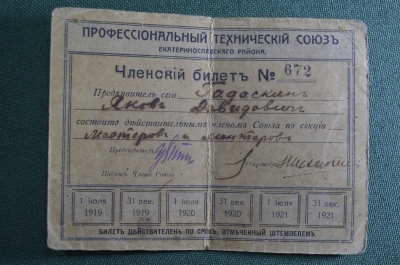 ПРОФЕССІОНАЛЬНЫЙ ТЕХНИЧЕСКІЙ СОЮЗЪ
ЕКАТЕРИНОСЛАВСКАГО РАЙОНА.
Членскій билетъ № 672
Предъявитель сего
Яковъ Давидовичъ
состоитъ дѣйствительнымъ членомъ Союза по секціи
Мастеровъ и монтеровъ
Предсѣдатель
Секретарь
Подпись Члена Союза
1 іюля 31 дек. 1 іюля 31 дек. 1 іюля 31 дек.
1919 1919 1920 1920 1921 1921
БИЛЕТЪ ДѢЙСТВИТЕЛЕНЪ ПО СРОКЪ, ОТМѢЧЕННЫЙ ШТЕМПЕЛЕМЪ.